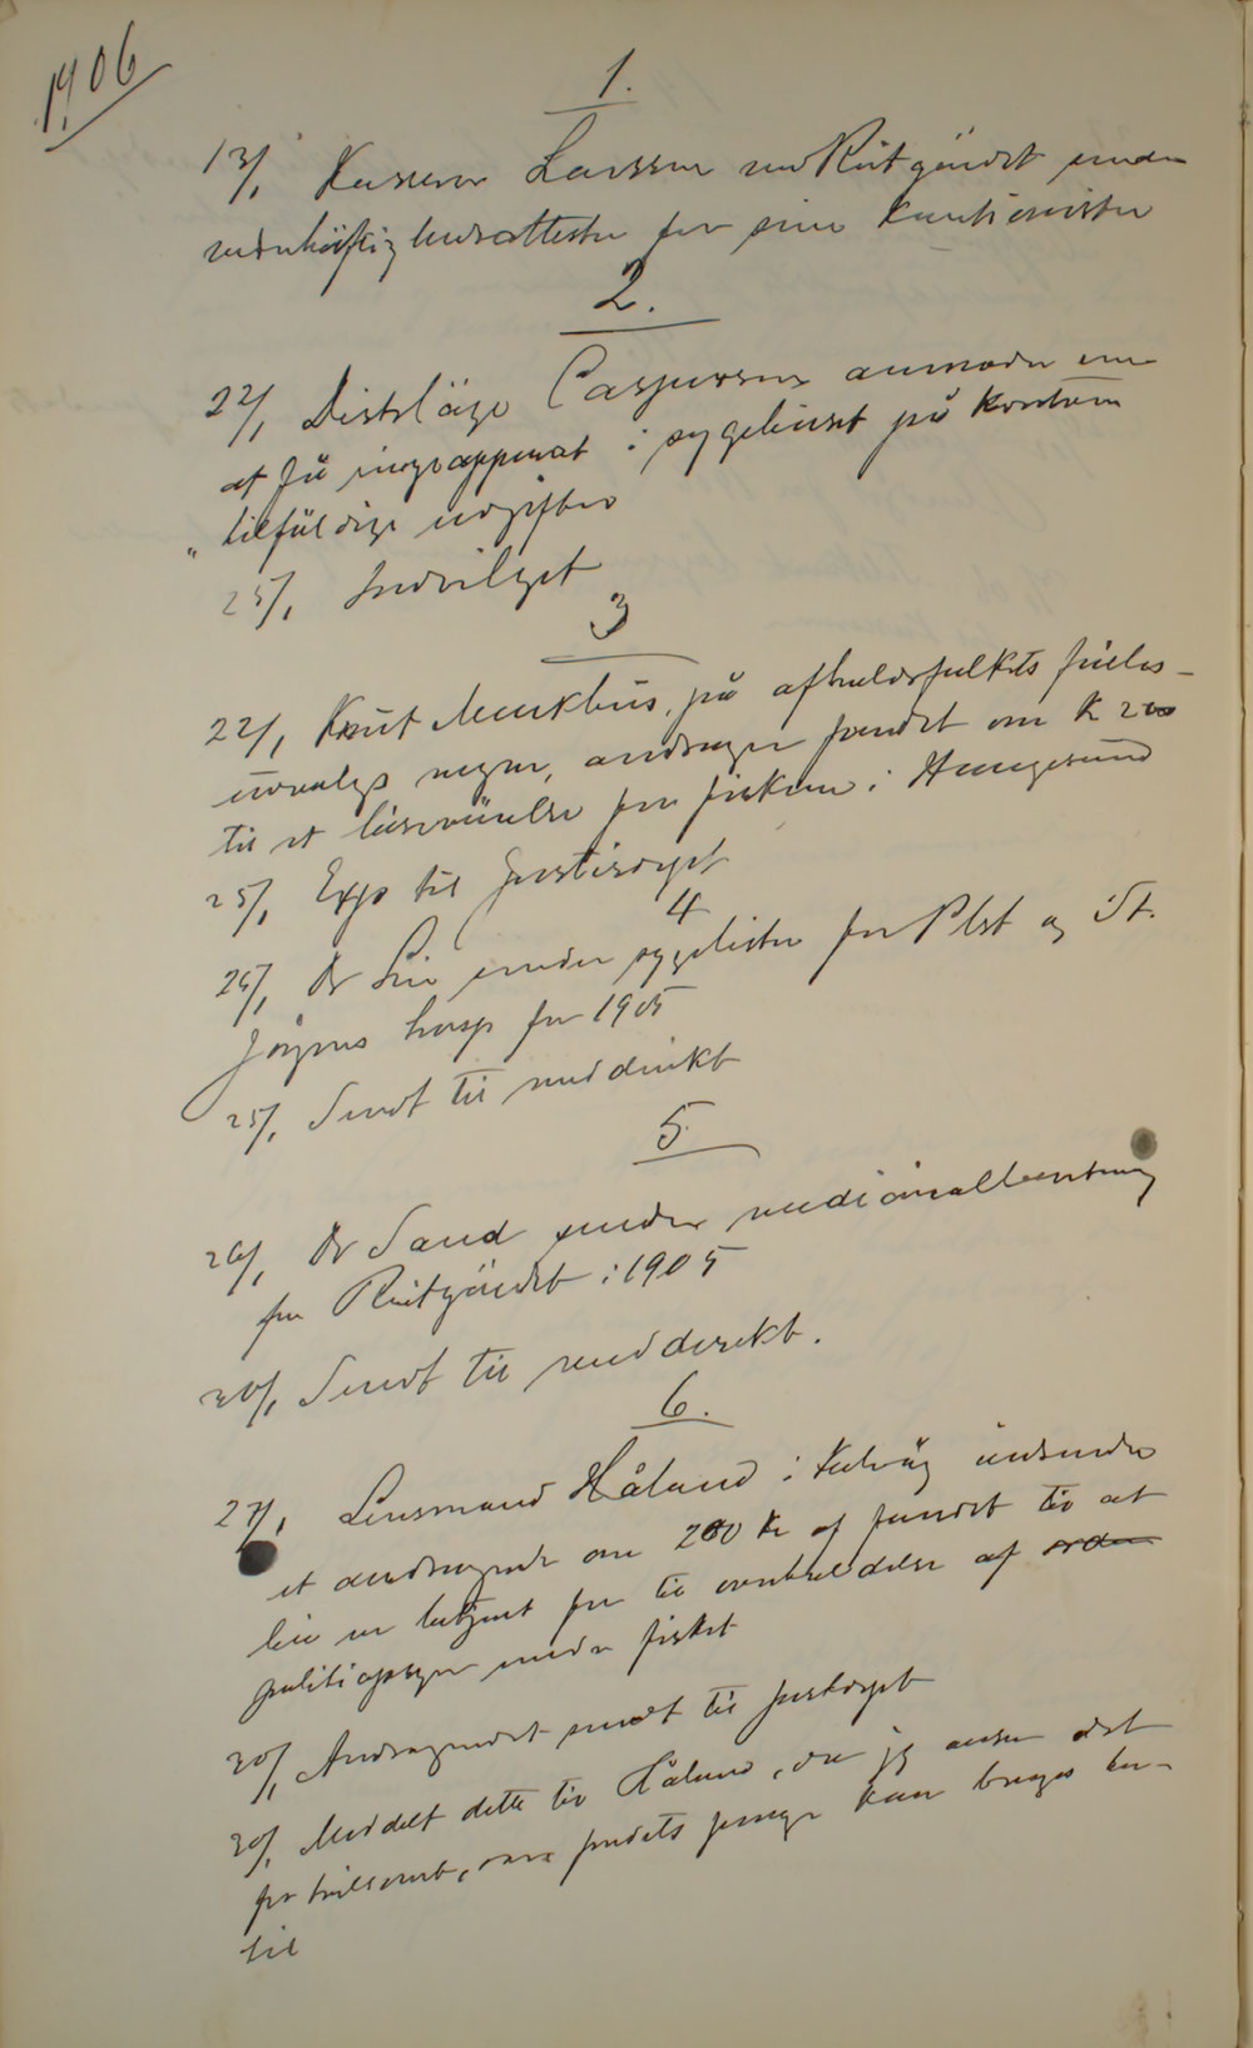 1906
1.
13/1 Kasserer Larssen ved Reitgjärdet sender
vederhäftighedsattester for sine kautionister
2.
22/1 Distrläge Caspersen anmoder om
at få ringeapparat i sygehuset på kontoen
"tilfäldige udgifter
25/1 Indvilget
3
22/1 Knut Munkhus, på afholdsfolkets fälles-
udvalgs vegne, andrager fondet om K 200
til et läseværelse for fiskerne i Haugesund
25/1 Exp til Justisdept
4
24/1 Dr Lie sender sygelister for Plst og St.
Jørgens hosp for 1905
25/1 Sendt til meddirekt
5.
26/1 Dr Sand sender medicinalberetning
fra Reitgjärdet i 1905
30/1 Sendt til meddirekt.
6.
27/1 Lensmand Håland i Kalvåg indsender
et andragende om 200 Kr af fondet til at
leie en betjent for til overholdelse af orden
politiopsyn under fisket
30/1 Andragendet sendt til justdept
30/1 Meddelt dette til Håland, da jeg anser det
for tvilsomt, om fondets penge kan bruges her-
til